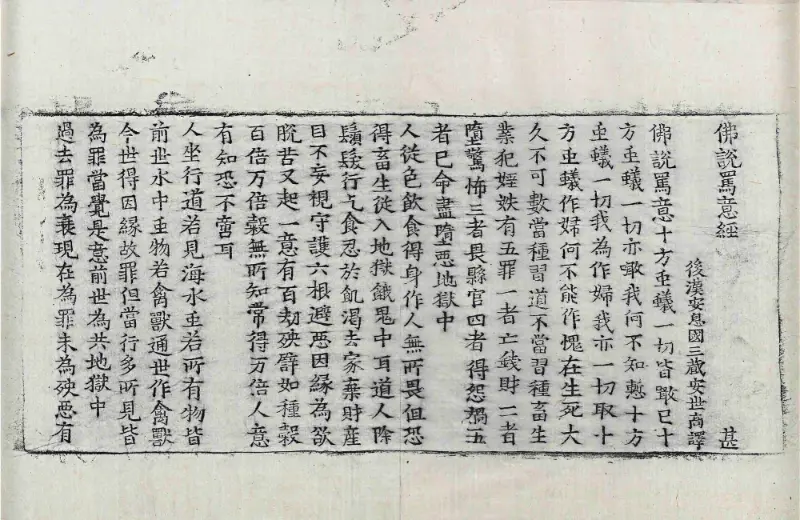 佛說罵意經　甚
後漢安息國三藏安世高譯
佛說罵意十方虫蟻一切皆噉已十
方虫蟻一切亦噉我何不知慙十方
虫蟻一切我為作婦我亦一切取十
方虫蟻作婦何不能作愧在生死大
久不可數當種習道不當習種畜生
業犯婬妷有五罪一者亡錢財二者
墮驚怖三者畏縣官四者得怨禍五
者已命盡墮惡地獄中
人從色飲食得身作人無所畏但恐
得畜生從入地獄餓鬼中耳道人除
鬚髮行乞食忍於飢渴去家棄財產
目不妄視守護六根避惡因緣為欲
脫苦又起一意有百劫殃譬如種穀
百倍万倍穀無所知常得万倍人意
有知恐不啻耳
人坐行道若見海水虫若所有物皆
前世水中虫物若禽獸通世作禽獸
今世得因緣故罪但當行多所見皆
為罪當覺是意前世為共地獄中
過去罪為衰現在為罪未為殃惡有